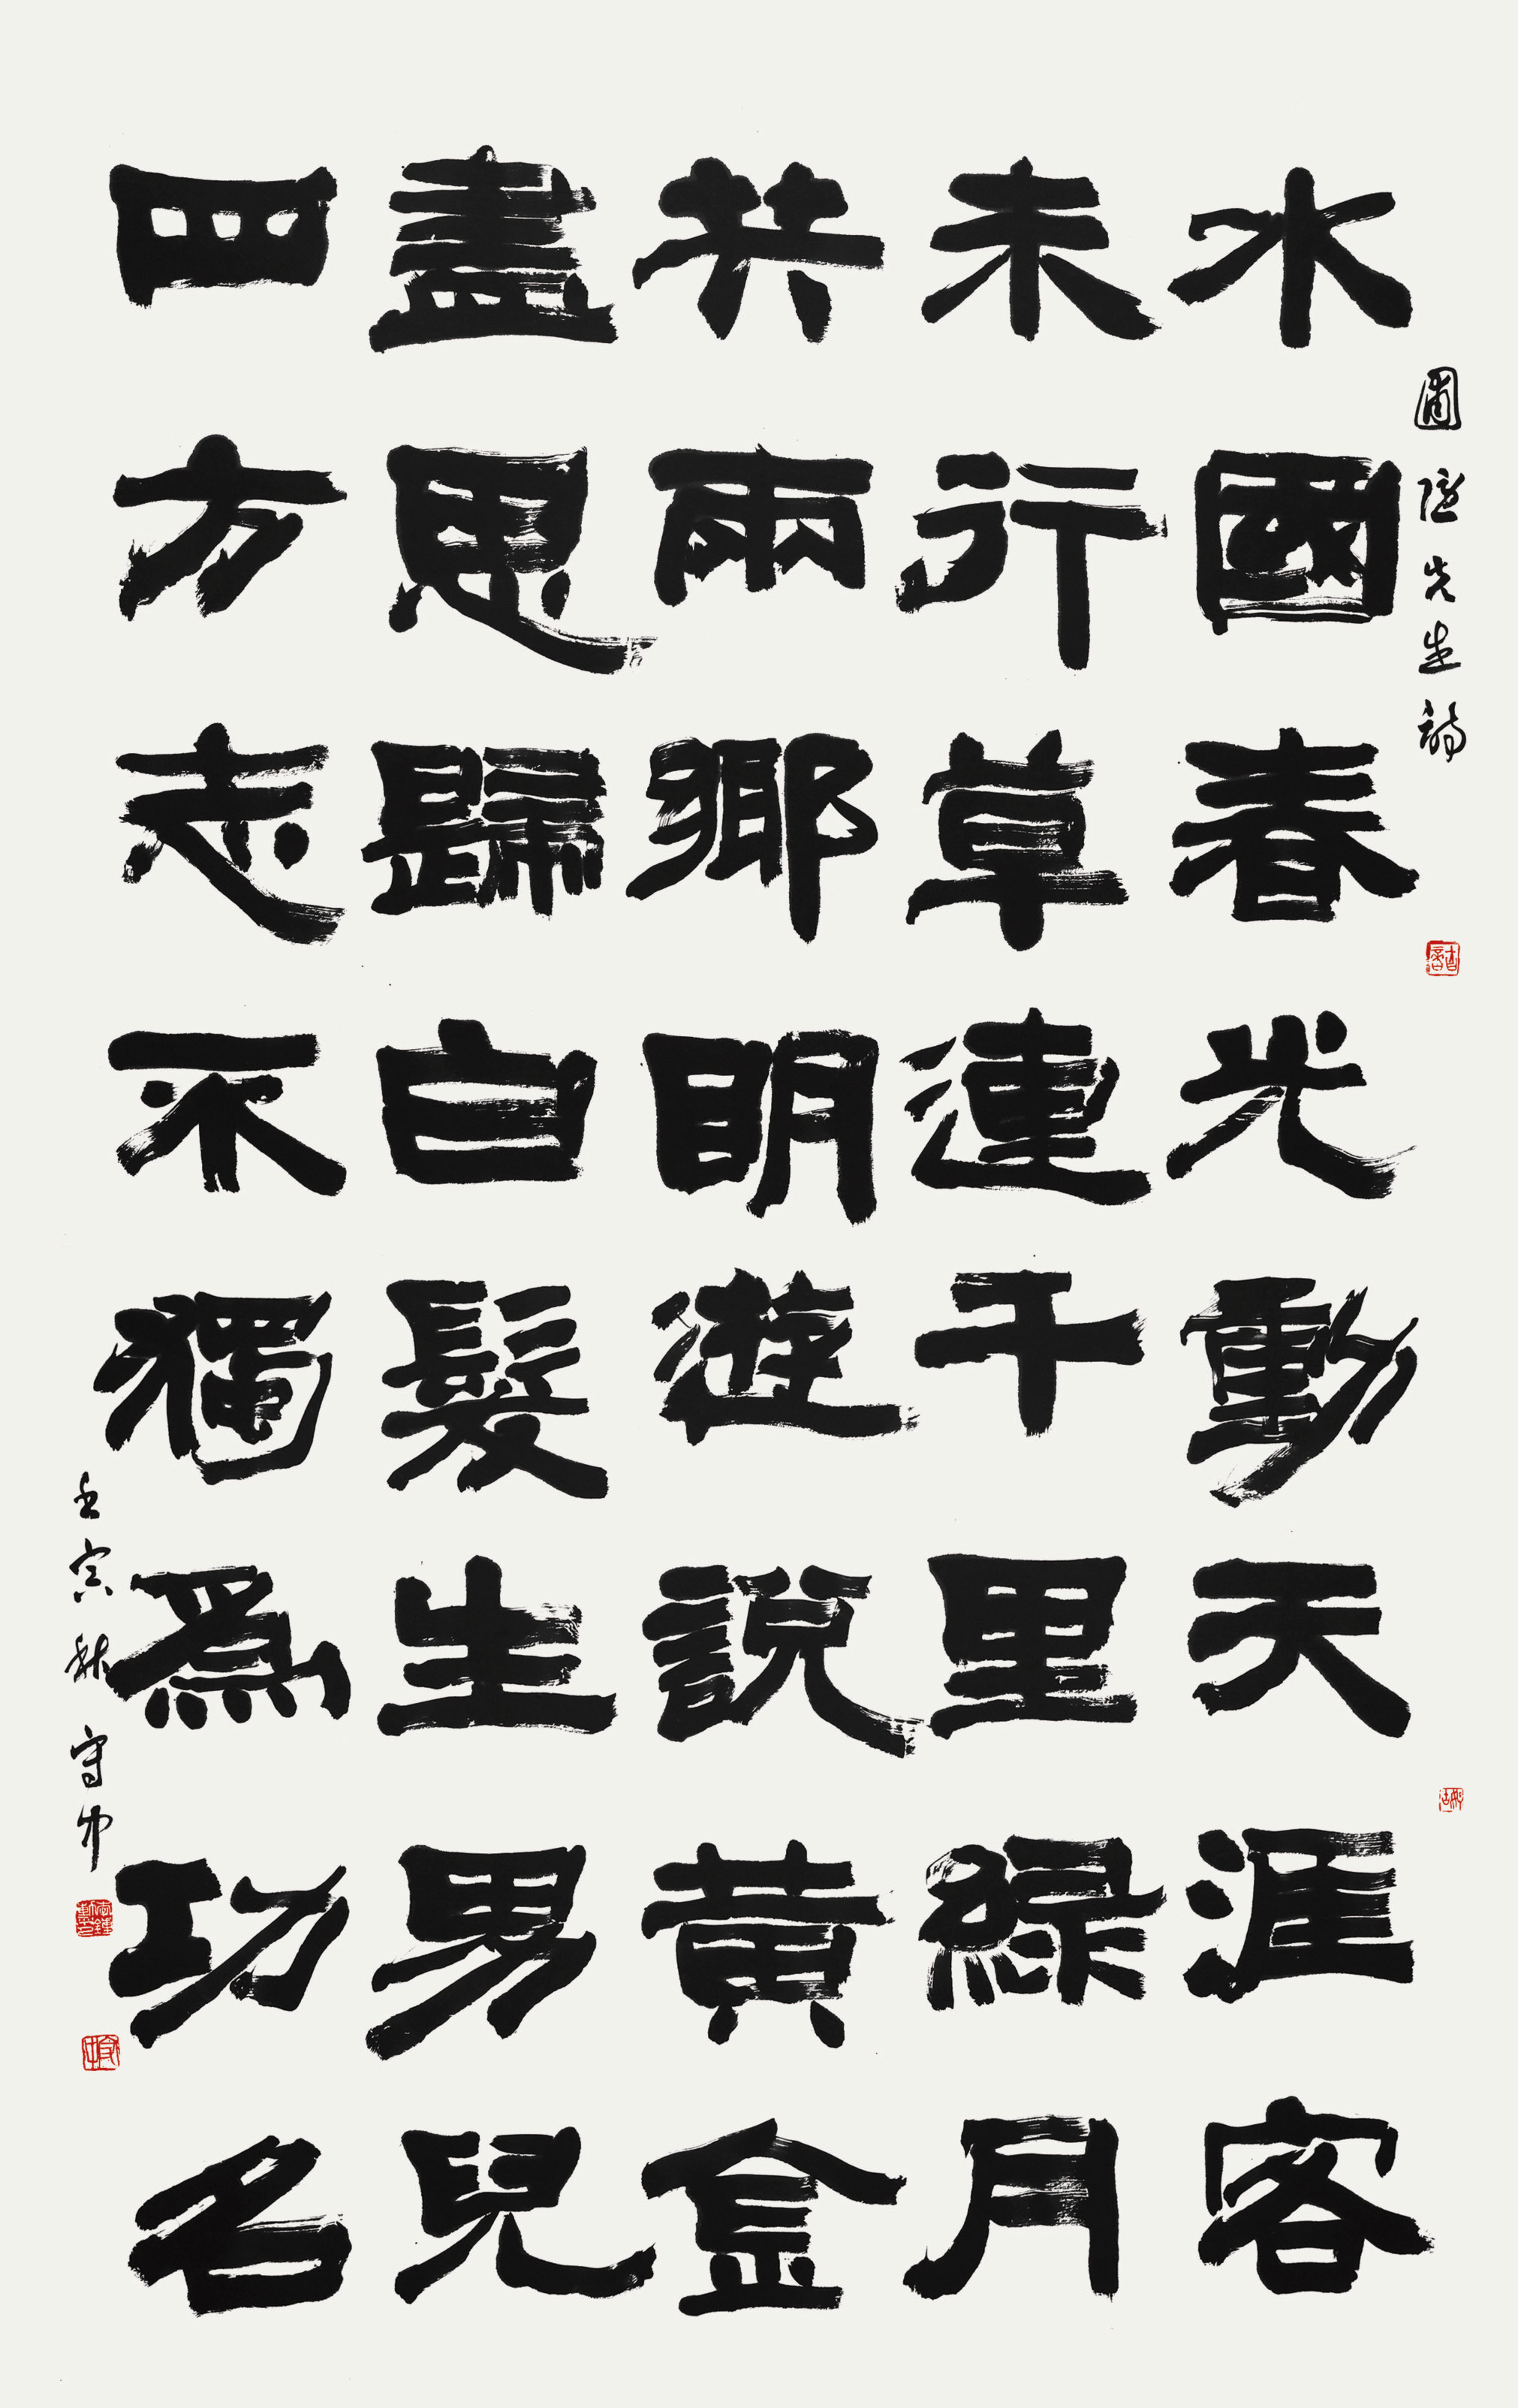 圃隱先生詩
水國春光動天涯客
未行草連千里綠月
共兩鄉明遊說黃金
盡思歸白髮生男兒
四方志不獨爲功名
壬寅秋 守中